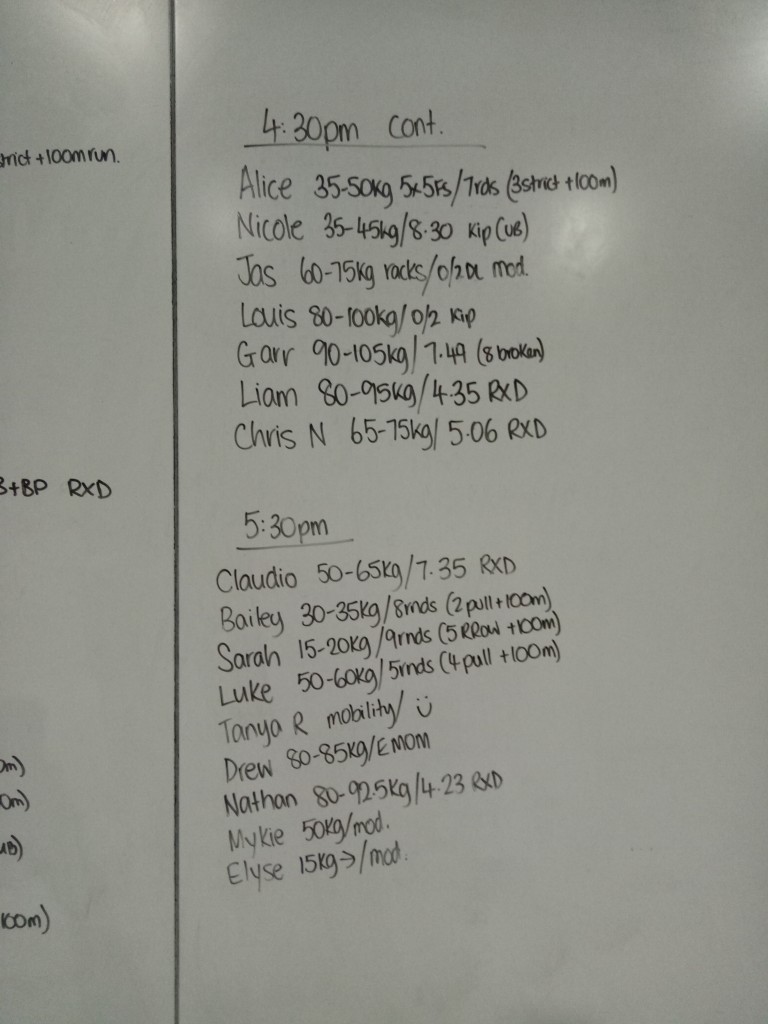 trict +100m run.
3+BP RXD
0m)
0m)
UB)
100m)
4:30pm cont.
Alice 35-50kg 5x5Fs/7rds (3strict +100m)
Nicole 35-45kg/8.30 Kip (UB)
Jas 60-75kg racks/0/2 mod.
Louis 80-100kg/0/2 Kip
Garr 90-105kg/7.49 (8 broken)
Liam 80-95kg/4.35 RXD
Chris N 65-75kg/5.06 RXD
5:30pm
Claudio 50-65kg/7.35 RXD
Bailey 30-35kg/8rnds (2pull+100m)
Sarah 15-20kg/9rnds (5 RRow +100m)
Luke 50-60kg/5rnds (4pull +100m)
Tanya R mobility/ Ü
Drew 80-85kg/EMOM
Nathan 80-92.5kg/4.23 RXD
Mykie 50kg/mod.
Elyse 15kg→/mod.